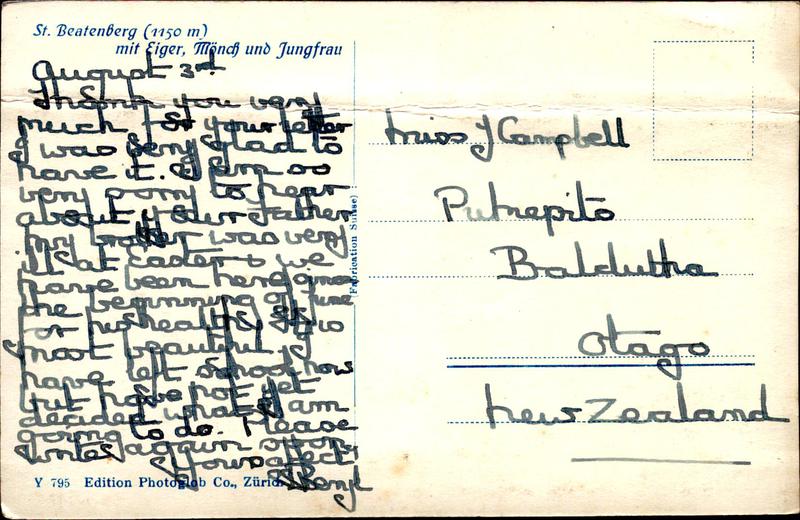 St. Beatenberg (1150 m)
mit Eiger, Mönch und Jungfrau
August 3rd.
Thank you very
much for your letter
I was very glad to
have it. I am so
very sorry to hear
about your Father
my brother was very
ill at Easter & we
have been here since
the beginning of June
for his health, It is
most beautiful. I
have left school now
but have not yet
decided what I am
going to do. Please
write again soon.
Yours affect.
Sheryl
Miss J Campbell
Putnepito
Baldutha
Otago
New Zealand
(Fabrication Suisse)
Y 795 Edition Photoglob Co., Zürich